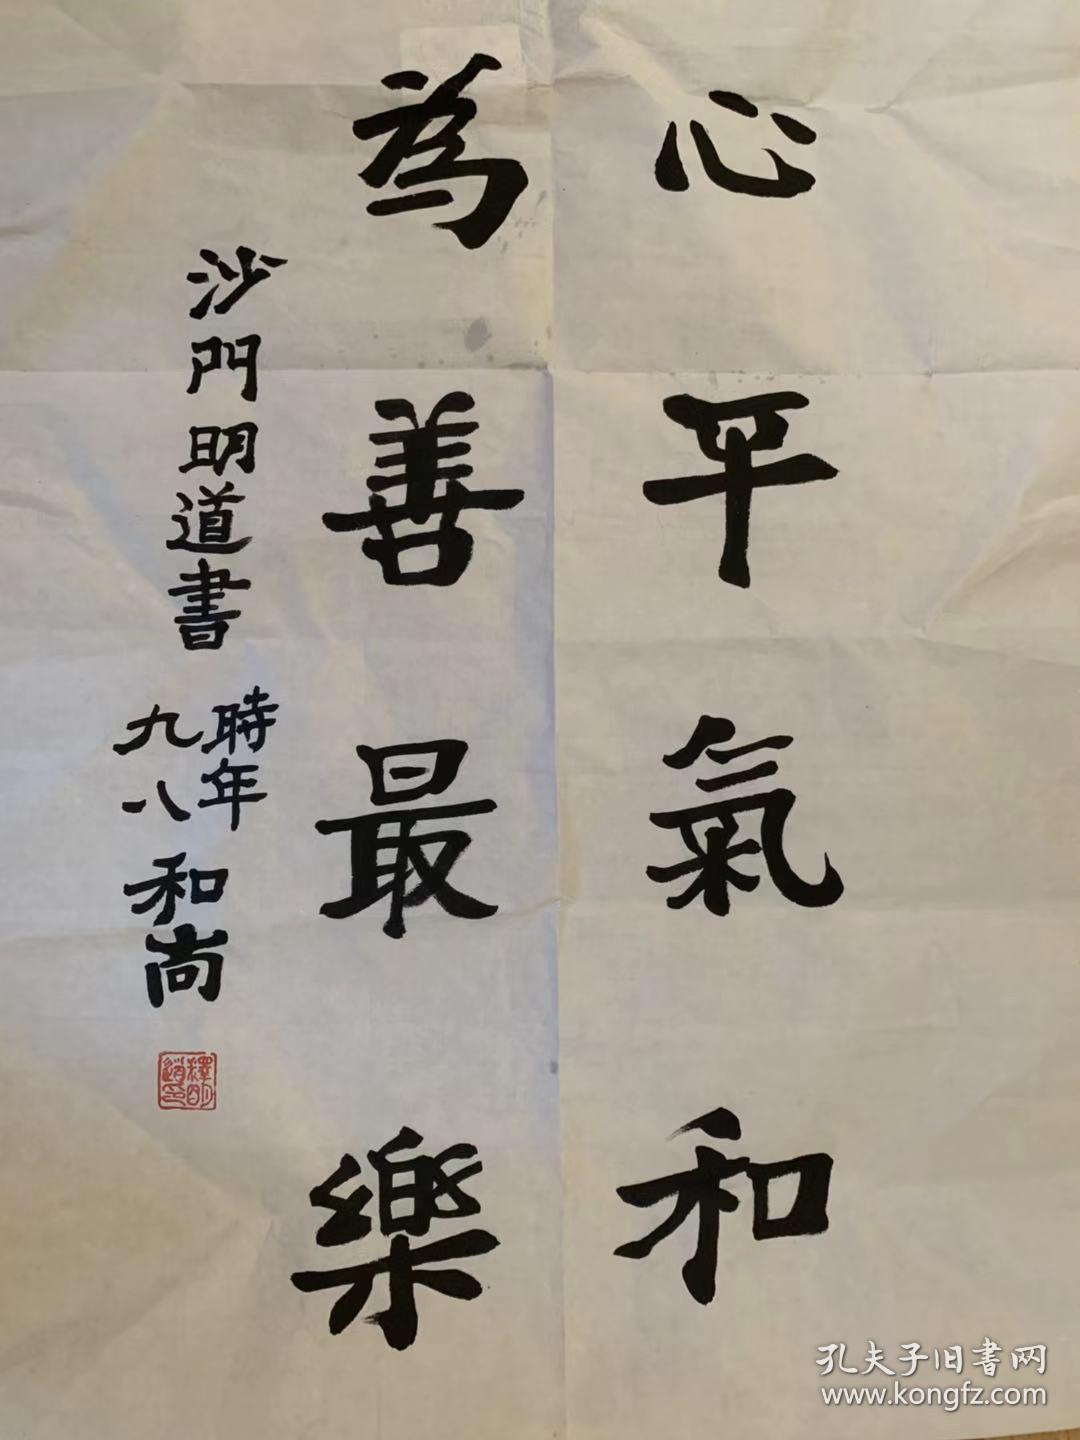 心平氣和
為善最樂
沙門明道書
時年
九八
和尚
釋明
道印
孔夫子旧書网
www.kongfz.com